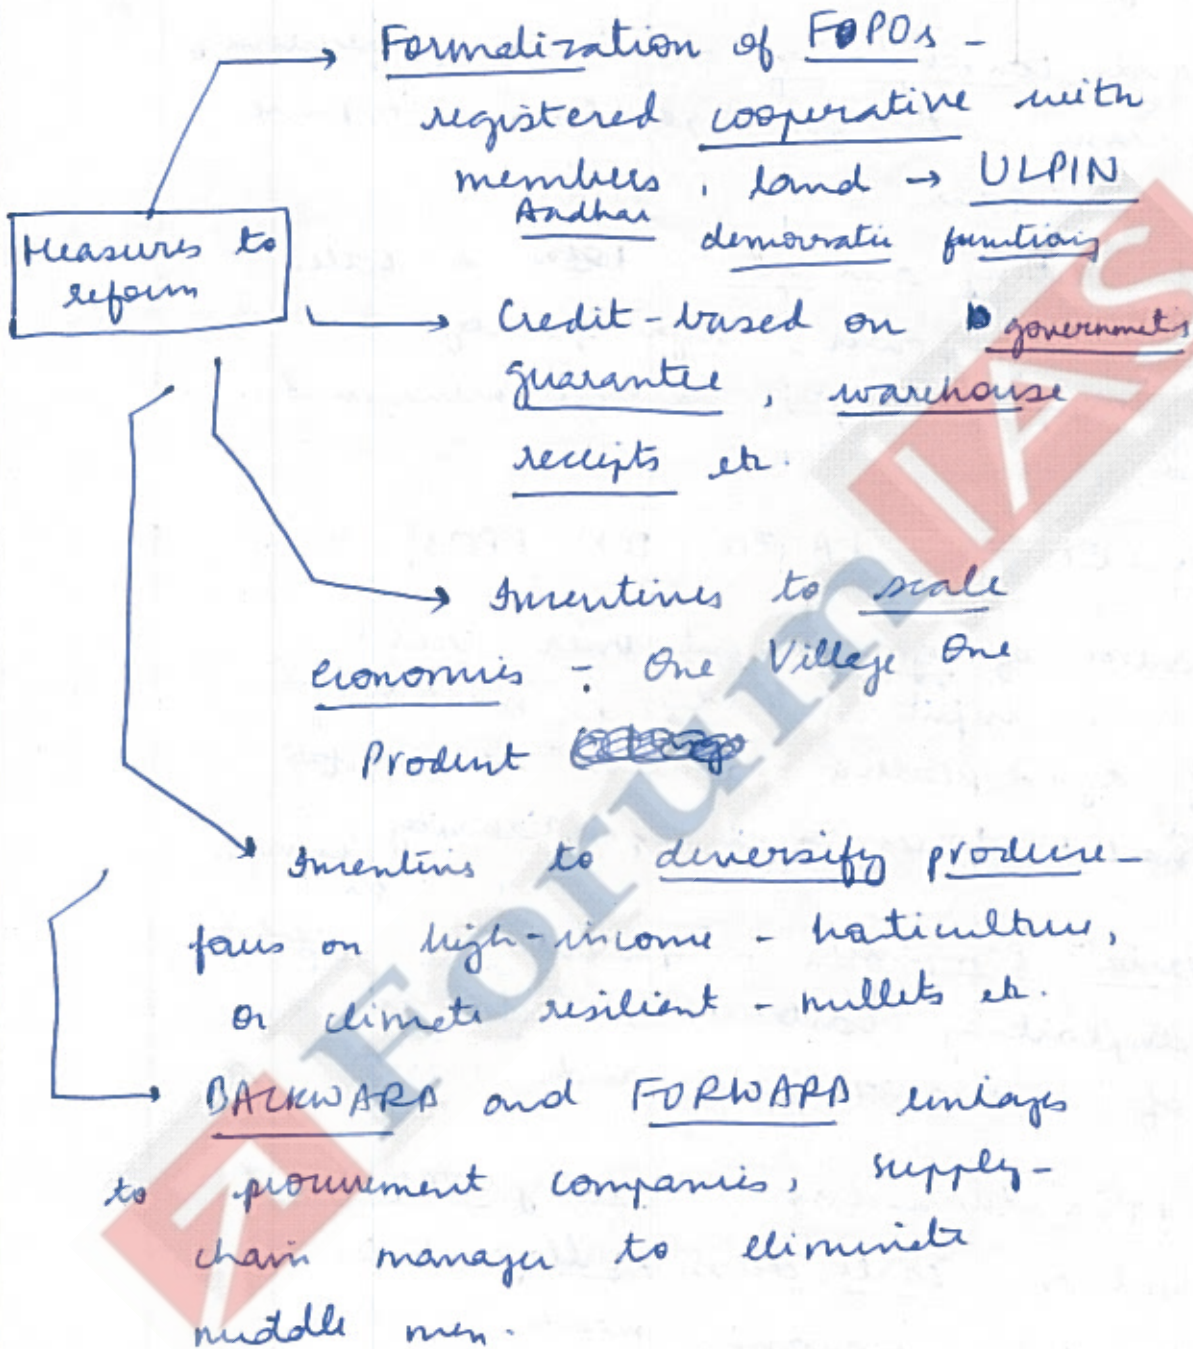 Formalization of FPOs -
registered cooperative with
members, land → ULPIN
Aadhar democratic functions
Measures to
reform
Credit-based on government's
guarantee, warehouse
receipts etc.
Incentives to scale
economies - One Village One
Product
Incentives to diversify produce -
focus on high-income - horticulture,
or climate resilient - millets etc.
BACKWARD and FORWARD linkages
to procurement companies, supply-
chain manager to eliminate
middle men.
ForumIAS